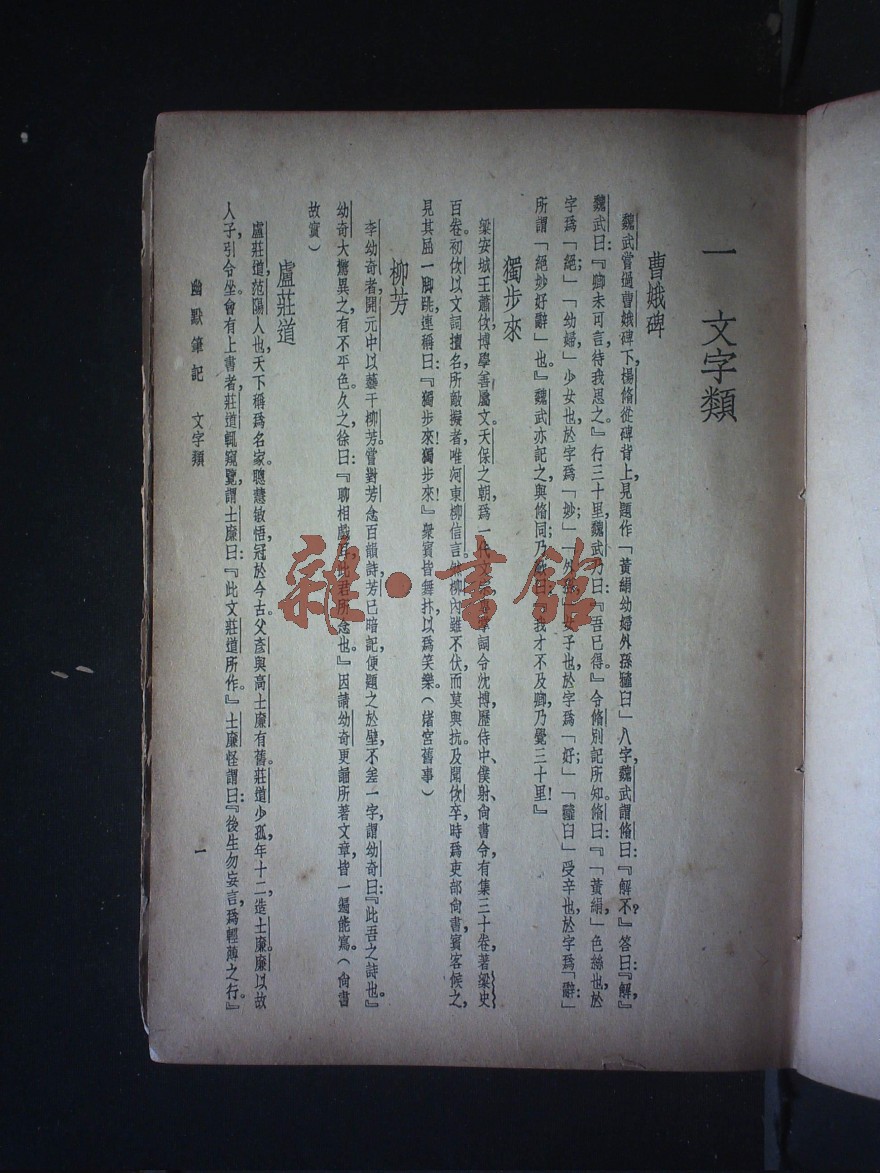 一　文字類
曹娥碑
魏武嘗過曹娥碑下，楊脩從碑背上，見題作「黃絹幼婦外孫韲臼」八字，魏武謂脩曰：『解不？』答曰：『解，』
魏武曰：『卿未可言，待我思之。』行三十里，魏武乃曰：『吾已得。』令脩別記所知。脩曰：『「黃絹，」色絲也，於
字爲「絕；」「幼婦，」少女也，於字爲「妙；」「外孫，」女子也，於字爲「好；」「韲臼」受辛也，於字爲「辭；」
所謂「絕妙好辭」也。』魏武亦記之，與脩同；乃歎曰：『我才不及卿，乃覺三十里！』
獨步來
梁安城王蕭佽，博學善屬文。天保之朝，爲一代文宗，詞令沈博，歷侍中、僕射、尙書令，有集三十卷，著梁史
百卷。初佽以文詞擅名，所敵擬者，唯河東柳信言。然柳內雖不伏，而莫與抗。及聞佽卒，時爲吏部尙書，賓客候之，
見其屈一脚跳，連稱曰：『獨步來！獨步來！』衆賓皆舞抃，以爲笑樂。（渚宮舊事）
柳芳
李幼奇者，開元中以藝干柳芳。嘗對芳念百韻詩，芳已暗記，便題之於壁，不差一字，謂幼奇曰：『此吾之詩也。』
幼奇大驚異之，有不平色。久之，徐曰：『聊相戲耳，此君所念也。』因請幼奇更誦所著文章，皆一遍能寫。（尙書
故實）
盧莊道
盧莊道，范陽人也，天下稱爲名家。聰慧敏悟，冠於今古。父彥與高士廉有舊。莊道少孤，年十二，造士廉。廉以故
人子，引令坐。會有上書者，莊道輒窺覽，謂士廉曰：『此文莊道所作。』士廉怪謂曰：『後生勿妄言，爲輕薄之行。』
幽默筆記　文字類
一
雜·書館